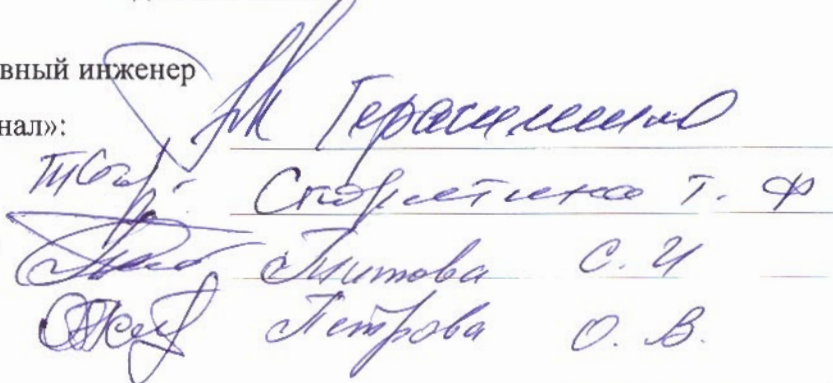 вный инженер
нал»:
Герасименко
Т. Ф
Титова С. И
Петрова О. В.